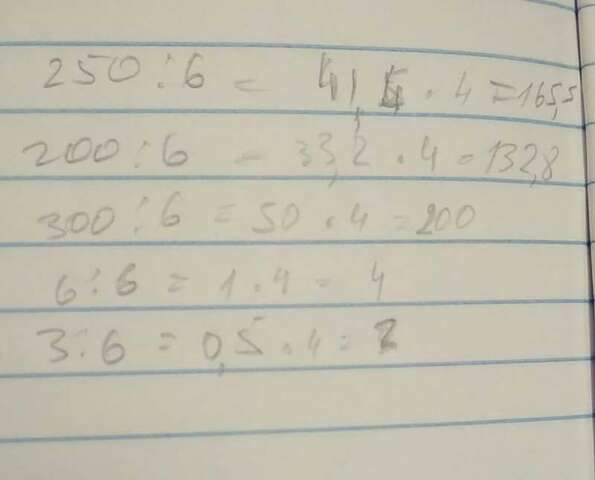 250 : 6 = 41,4 · 4 = 165,5
200 : 6 = 33,2 · 4 = 132,8
300 : 6 = 50 · 4 = 200
6 : 6 = 1 · 4 = 4
3 : 6 = 0,5 · 4 = 2